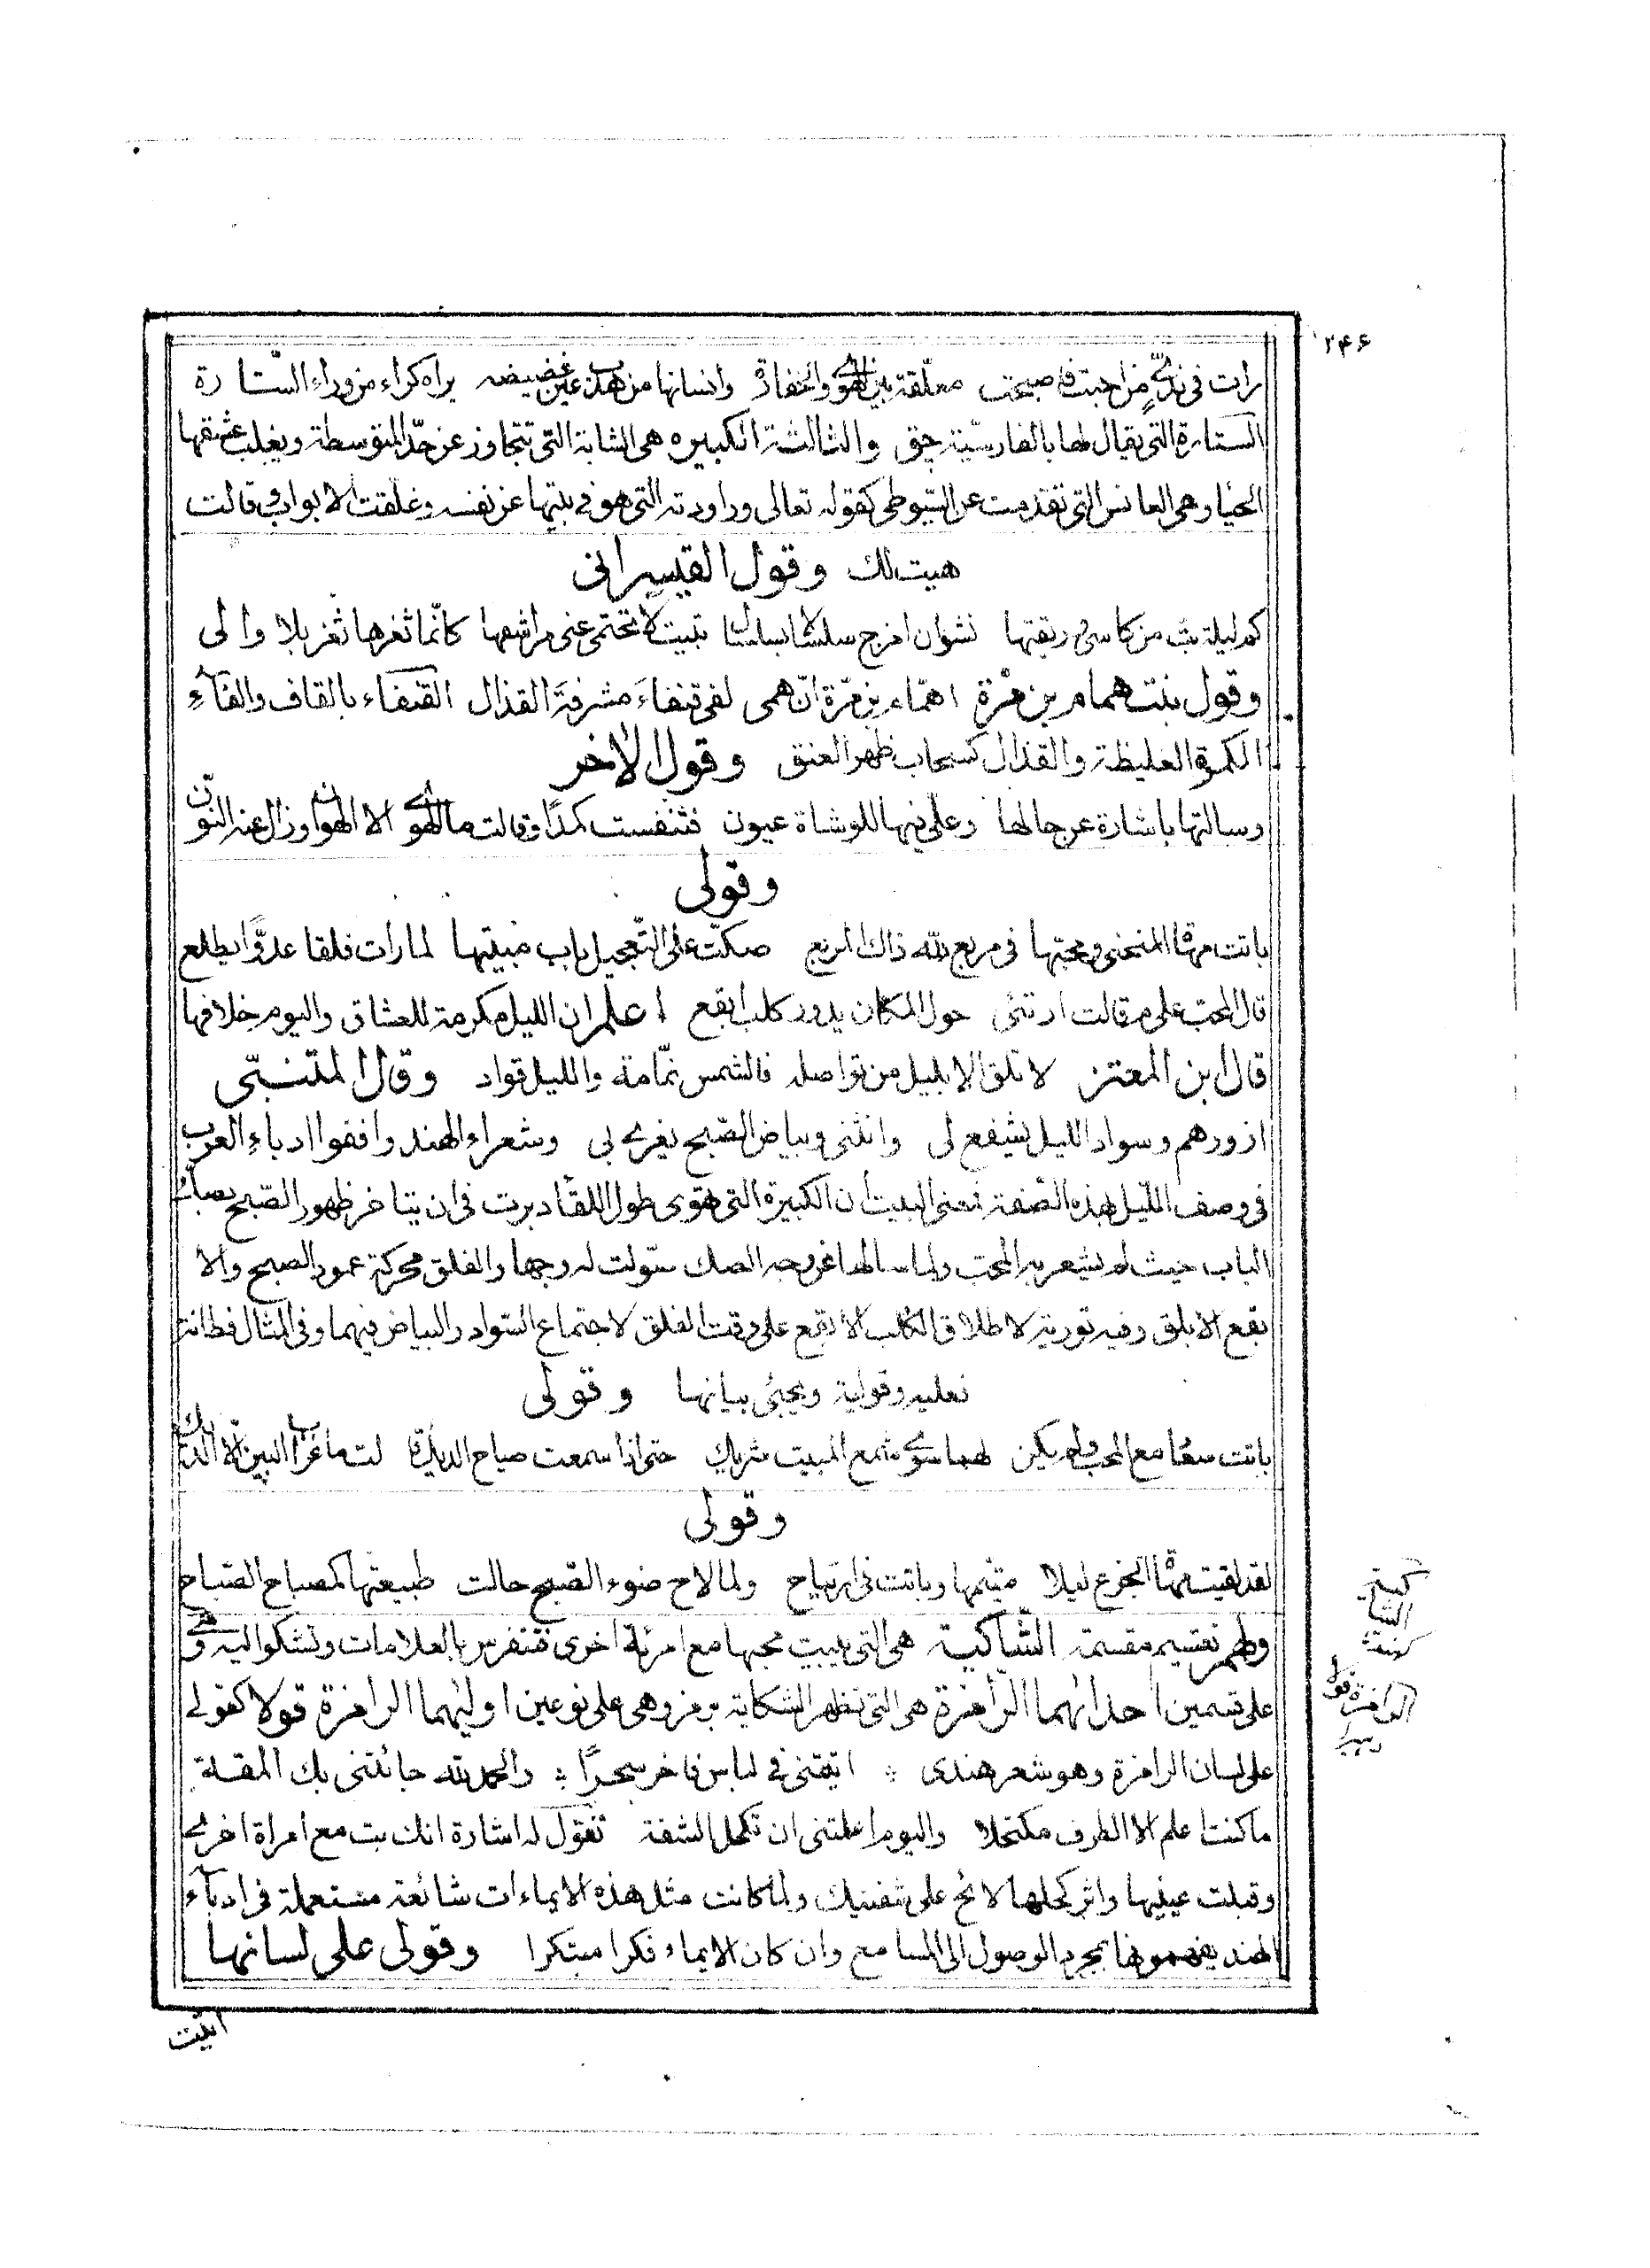 ۲۴۶
رات فى ندىّ من احبت فاصبحت معلّقة بين الهوى والخفارة وانسانها من هدب عين غضيضه يراه كراء من وراء الستّارة
الستارة التى يقال لها بالفارسيّة چق والثالثة الكبيره هى الشابة التى تتجاوز عن حدّ المتوسطة ويغلب عشقها
الحيا وهى العانس التى تقدمت عن السّيوطى كقوله تعالى وراودته التى هو فى بيتها عن نفسه وغلّقت الابواب وقالت
هيت لك وقول القيسرانى
كم ليلة بت من كاسى وريقتها نشوان امزج سلسالا بسلسال تبيت لا تحتمى عنى مراشفها كانّما ثغرها ثغر بلا والى
وقول بنت همام بن مرّة اهمّام بن مرّة انّ همى لفى قنفاءَ مشرفة القذال القنفاء بالقاف والفاءِ
الكمرة الغليظة والقذال كسحاب ظهر العنق وقول الاخر
وسالتها باشارة عن حالها وعلىّ فيها للوشاة عيون فتنفست كمدًا وقالت ما الهوى الا الهوان وزال عنه النون
وقولى
باتت مهاة المنحنى ومحبّها فى مربع لله ذاك المربع صكّت على التّعجيل باب مبيتها لما رات فلقا علوًّا يطلع
قال المحب على م قالت اذ تنئى حول المكان يدور كلب ابقع اعلم ان الليل مكرمة للعشاق واليوم خلافها
قال ابن المعتز لا تلق الا بليل من تواصله فالشمس نمّامة والليل قواد وقال المتنبّى
ازورهم وسواد الليل يشفع لى وانثنى وبياض الصّبح يغرى بى وشعراء الهند وافقوا ادباءِ العرب
فى وصف اللّيل بهذه الصّفة فمعنى البيت ان الكبيرة التى تهوى طول اللقا دبرت فى ان يتاخر ظهور الصّبح بصك
الباب حيث لم يشعر به المحب ولما سالها عن وجه الصك سوّلت له وجها والفلق محركة عمود الصبح والا
بقع الابلق وفيه تورية لاطلاق الكلب الابقع على وقت الفلق لاجتماع السّواد والبياض فيهما وفى المثال فطانة
فعليه وقولية ويجيئ بيانها وقولى
باتت سعا مع المحب ولم يكن لهما سوى شمع المبيت شريك حتى اذا سمعت صياح الديك قالت ما غراب البين الا الديك
وقولى
لقد لقيت مهاة الجزع ليلا متيّمها وباتت فى ارتياح ولما لاح ضوء الصّبح حالت طبيعتها كمصباح الصّباح
ولهم تقسيم مقسمة الشّاكية هى التى يبيت محبها مع امرئة اخرى فتتفرس بالعلامات وتشكو اليه وهى
على قسمين احداهما الرّامزة هى التى تظهر الشكاية برمز وهى على نوعين اوليهما الرامزة قولا كقولى
على لسان الرامزة وهو شعر هندى اتيتنى فى لباس فاخر سحرًا والحمد لله جائتنى بك المقة
ما كنت اعلم الا الطرف مكتحلا واليوم اعلمتنى ان تكحل الشفة تقول له اشارة انك بت مع امراة اخرى
وقبلت عينيها واثر كحلها لائح على شفتيك ولما كانت مثل هذه الايماءات شائعة مستعملة فى ادباءِ
الهند يفهمونها بمجرد الوصول الى المسامع وان كان الايماء فكرا مبتكرا وقولى على لسانها
الشاكية
الرامزة قولا
اتيت